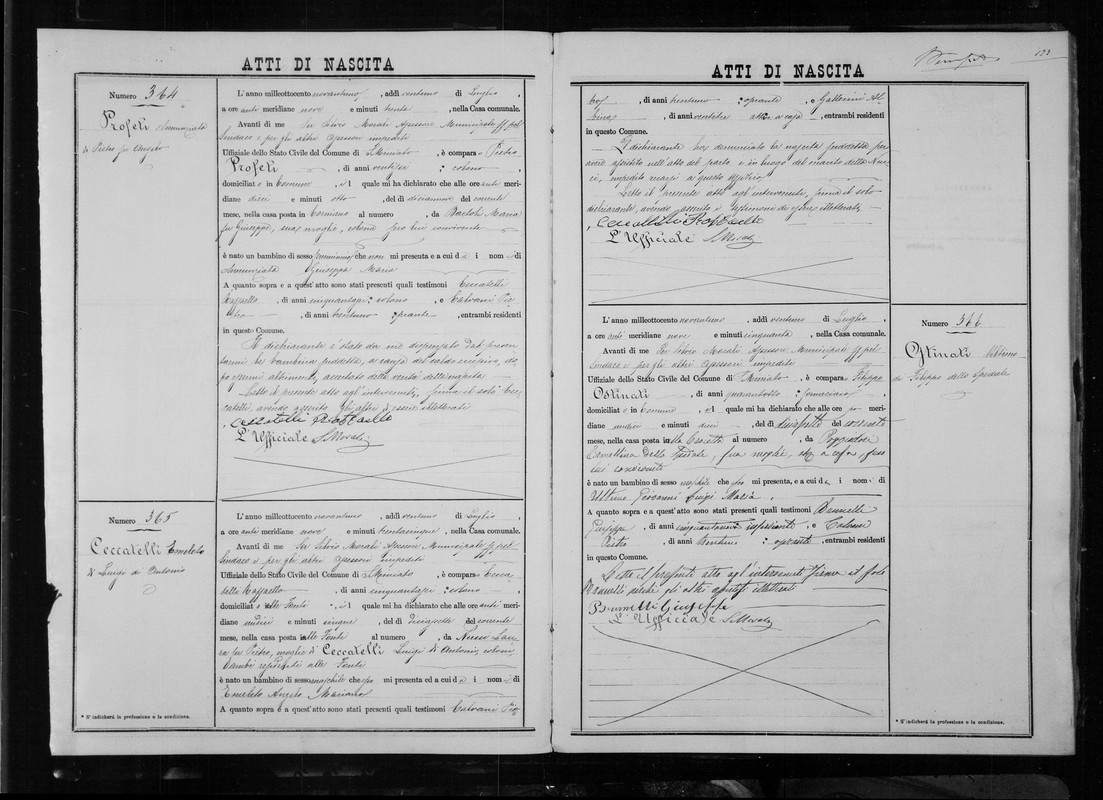 ATTI DI NASCITA
Numero 364
Profeti Annunziata
di Pietro fu Angelo
L'anno milleottocento novantuno, addì ventuno di Luglio,
a ore anti meridiane nove e minuti trenta, nella Casa comunale.
Avanti di me Ser Silvio Morali Assessore Municipale ff pel
Sindaco e per gli altri Assessori impediti
Uffiziale dello Stato Civile del Comune di S. Miniato, è comparso Pietro
Profeti, di anni ventisei * colono,
domiciliato in Comune, il quale mi ha dichiarato che alle ore anti meri-
diane dieci e minuti otto, del dì diciannove del corrente
mese, nella casa posta in al numero, da Bartoli Maria
fu Giuseppe, sua moglie, colona seco lui convivente
è nato un bambino di sesso femminino che non mi presenta e a cui dà i nomi di
Annunziata Giuseppa Maria
A quanto sopra e a quest'atto sono stati presenti quali testimoni Ceccatelli
Raffaello, di anni cinquantasei * colono, e Calvani Pie-
tro, di anni trentuno * oprante, entrambi residenti
in questo Comune.
Il dichiarante è stato da me dispensato dal presen-
tarmi la bambina suddetta a causa del caldo eccessivo, do-
po essermi altrimenti accertato della verità della nascita
Letto il presente atto agl'intervenuti, firma il solo Cec-
catelli, avendo asserito gli altri d'essere illetterati
Ceccatelli Raffaello
L'Uffiziale S. Morali
Numero 365
Ceccatelli Emeleto
di Luigi di Antonio
L'anno milleottocento novantuno, addì ventuno di Luglio,
a ore anti meridiane nove e minuti trentacinque, nella Casa comunale.
Avanti di me Ser Silvio Morali Assessore Municipale ff pel
Sindaco e per gli altri Assessori impediti
Uffiziale dello Stato Civile del Comune di S. Miniato, è comparso Cecca-
telli Raffaello, di anni cinquantasei * colono,
domiciliato alle Fonti, il quale mi ha dichiarato che alle ore anti meri-
diane undici e minuti cinque, del dì diciassette del corrente
mese, nella casa posta alle Fonti al numero, da Nucci Lau-
ra fu Pietro, moglie di Ceccatelli Luigi di Antonio, coloni
ambi residenti alle Fonti
è nato un bambino di sesso maschile che mi presenta ed a cui dà i nomi di
Emeleto Angelo Mariano
A quanto sopra e a quest'atto sono stati presenti quali testimoni Calvani Pie-
* S'indicherà la professione o la condizione.
122
ATTI DI NASCITA
tro, di anni trentuno * oprante, e Gallerini Al-
bina, di anni ventitre atta a casa, entrambi residenti
in questo Comune.
Il dichiarante ha denunciato la nascita suddetta per
avere assistito nell'atto del parto e in luogo del marito della Nuc-
ci, impedito recarsi a questo Uffizio
Letto il presente atto agl'intervenuti, firma il solo
dichiarante, avendo asserito i testimoni di essere illetterati
Ceccatelli Raffaello
L'Uffiziale S. Morali
Numero 366
Ostinati Ultimo
di Filippo dello Spedale
L'anno milleottocento novantuno, addì ventuno di Luglio,
a ore anti meridiane nove e minuti cinquanta, nella Casa comunale.
Avanti di me Ser Silvio Morali Assessore Municipale ff pel
Sindaco e per gli altri Assessori impediti
Uffiziale dello Stato Civile del Comune di S. Miniato, è comparso Filippo
Ostinati, di anni quarantotto * fornaciaro,
domiciliato in Comune, il quale mi ha dichiarato che alle ore po meri-
diane undici e minuti dieci, del dì diciassette del corrente
mese, nella casa posta alla Crocetta al numero, da
Cavallina dello Spedale, sua moglie, atta a casa, seco
lui convivente
è nato un bambino di sesso maschile che mi presenta, e a cui dà i nomi di
Ultimo Giovanni Luigi Maria.
A quanto sopra e a quest'atto sono stati presenti quali testimoni Brunelli
Giuseppe, di anni cinquantanove inserviente, e Calvani
Pietro, di anni trentuno * oprante, entrambi residenti
in questo Comune.
Letto il presente atto agl'intervenuti firma il solo
Brunelli perché gli altri illetterati
Brunelli Giuseppe
L'Uffiziale S. Morali
* S'indicherà la professione o la condizione.